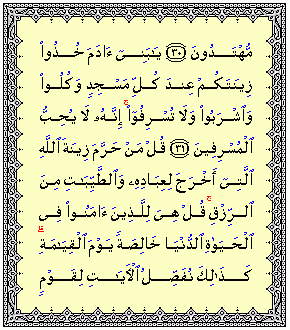 مُّهْتَدُونَ ﴿٣٠﴾ يَٰبَنِىٓ ءَادَمَ خُذُوا۟
زِينَتَكُمْ عِندَ كُلِّ مَسْجِدٍ وَكُلُوا۟
وَٱشْرَبُوا۟ وَلَا تُسْرِفُوٓا۟ ۚ إِنَّهُۥ لَا يُحِبُّ
ٱلْمُسْرِفِينَ ﴿٣١﴾ قُلْ مَنْ حَرَّمَ زِينَةَ ٱللَّهِ
ٱلَّتِىٓ أَخْرَجَ لِعِبَادِهِۦ وَٱلطَّيِّبَٰتِ مِنَ
ٱلرِّزْقِ ۚ قُلْ هِىَ لِلَّذِينَ ءَامَنُوا۟ فِى
ٱلْحَيَوٰةِ ٱلدُّنْيَا خَالِصَةً يَوْمَ ٱلْقِيَٰمَةِ ۗ
كَذَٰلِكَ نُفَصِّلُ ٱلْءَايَٰتِ لِقَوْمٍ